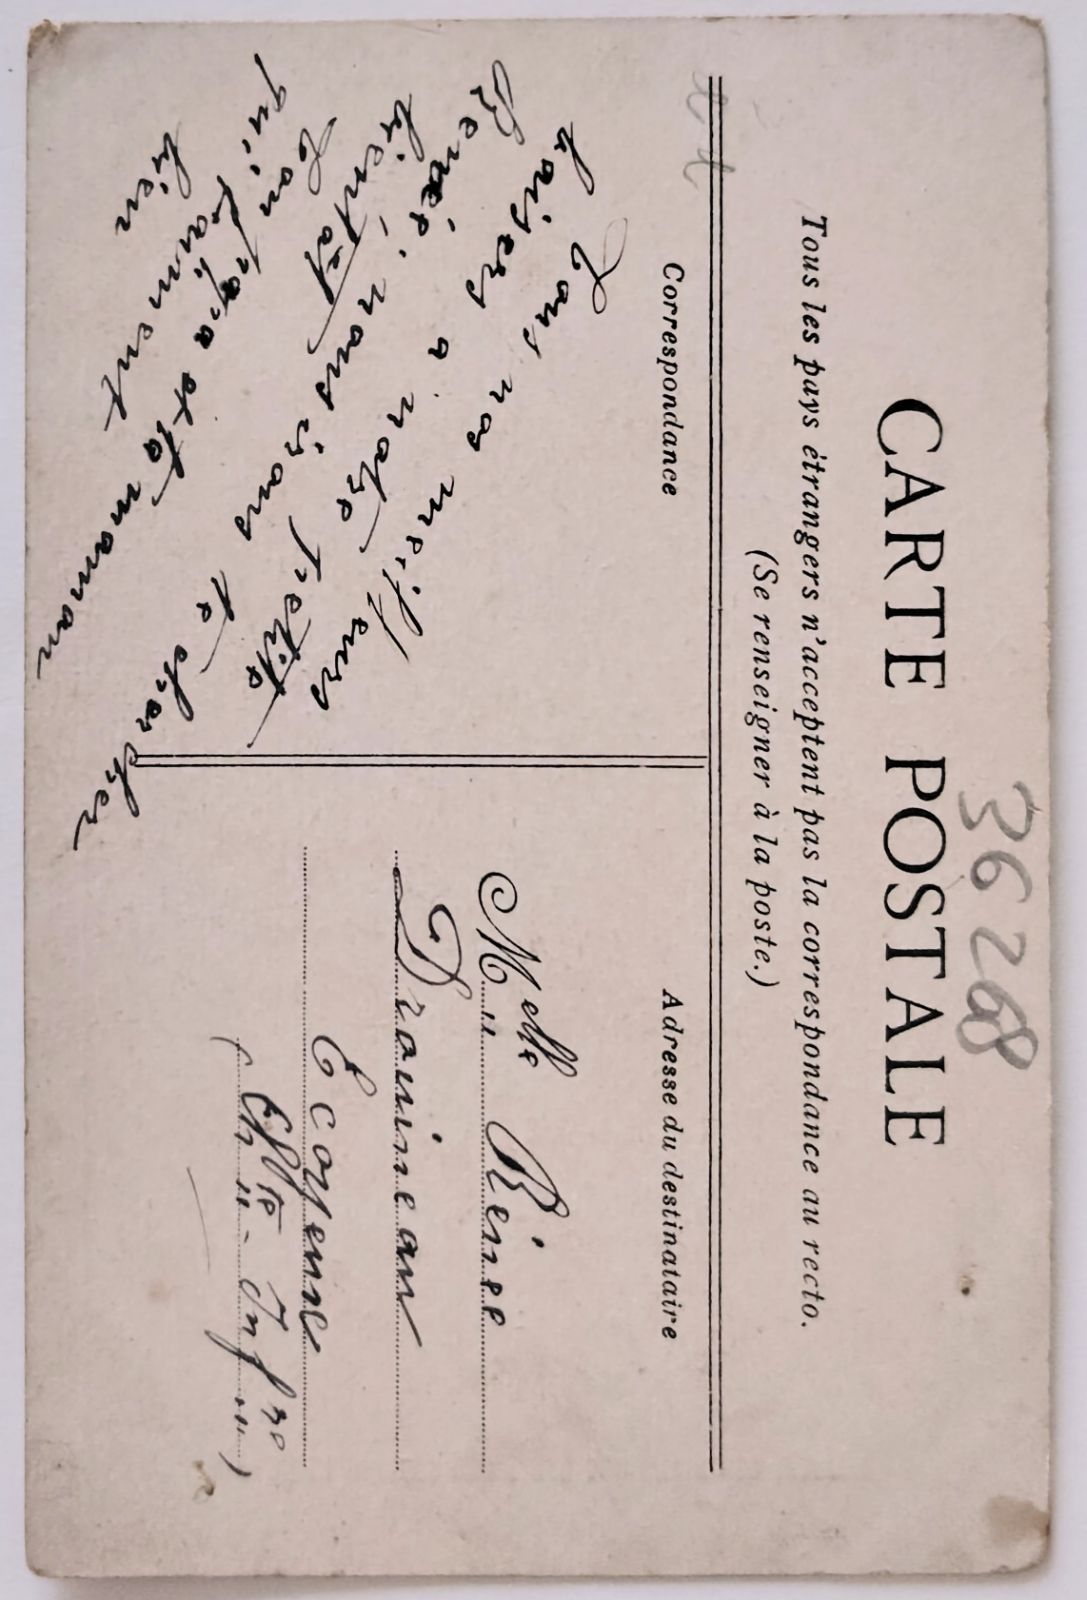 36268
CARTE POSTALE
Tous les pays étrangers n'acceptent pas la correspondance au recto.
(Se renseigner à la poste.)
Correspondance
Adresse du destinataire
Tous nos meilleurs
baisers a notre petite
Renée, nous irons te chercher
bientôt
Ton papa et ta maman
qui t'aiment
bien
Melle Rénee
Drouineau
Ecoyeux
(Chte - Infre)